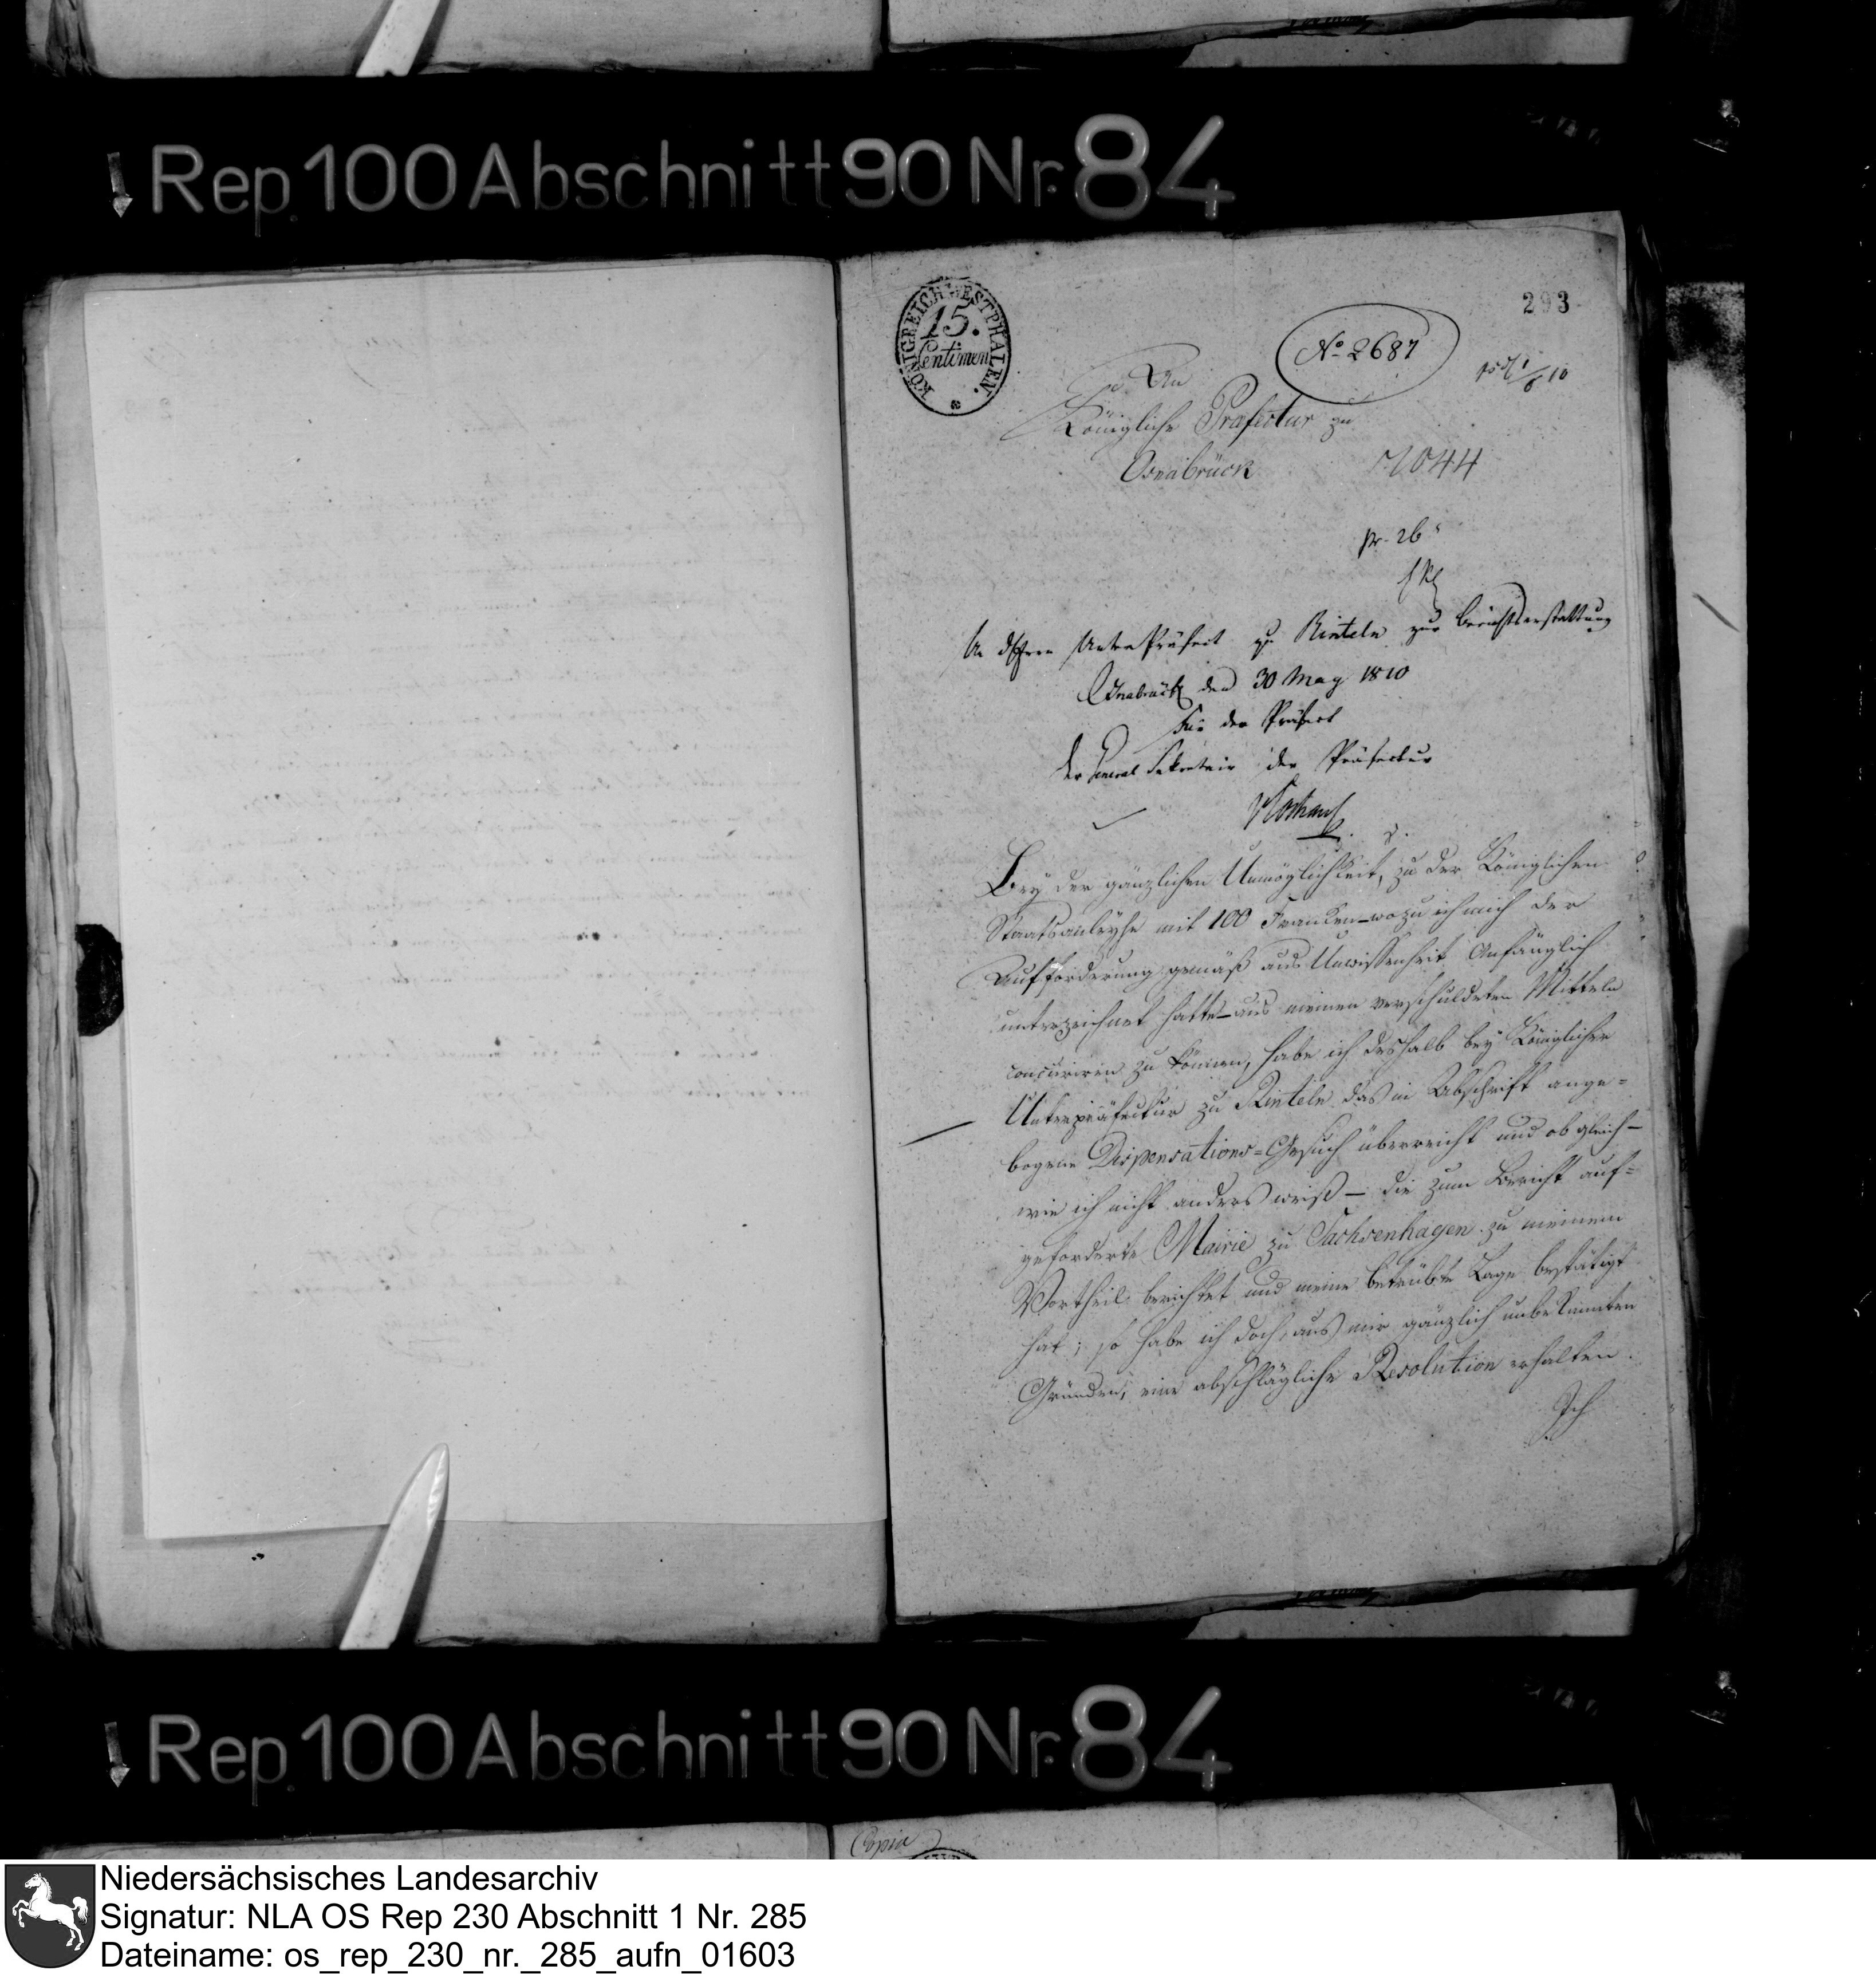 Rep. 100 Abschnitt 90 Nr. 84
293
KÖNIGREICH WESTPHALEN.
15.
Centimen
No 2687
An
Königliche Präfectur zu
Osnabrück
7044
pr. 26
An d Herrn Unter Präfect zu Rinteln zur Berichtserstattung
Osnabrück den 30 May 1810
Für den Präfect
der General Sekretair der Präfectur
Bey der gänzlichen Unmöglichkeit, zu der Königlichen
Staatsanleyhe mit 100 Franken – wozu ich mich der
Aufforderung gemäß aus Unwissenheit Anfänglich
unterzeichnet hatte – aus meinen verschuldeten Mitteln
concuriren zu können, habe ich deshalb bey Königlicher
Unterpräfectur zu Rinteln das in Abschrift ange=
bogene Dispensations=Gesuch überreicht und ob gleich –
wie ich nicht anders weiß – die zum Bericht auf=
geforderte Mairie zu Sachsenhagen zu meinem
Vortheil berichtet und meine betrübte Lage bestätigt
hat; so habe ich doch, aus mir gänzlich unbekannten
Gründen, eine abschlägliche Resolution erhalten.
Ich
Rep. 100 Abschnitt 90 Nr. 84
Copia
Niedersächsisches Landesarchiv
Signatur: NLA OS Rep 230 Abschnitt 1 Nr. 285
Dateiname: os_rep_230_nr._285_aufn_01603